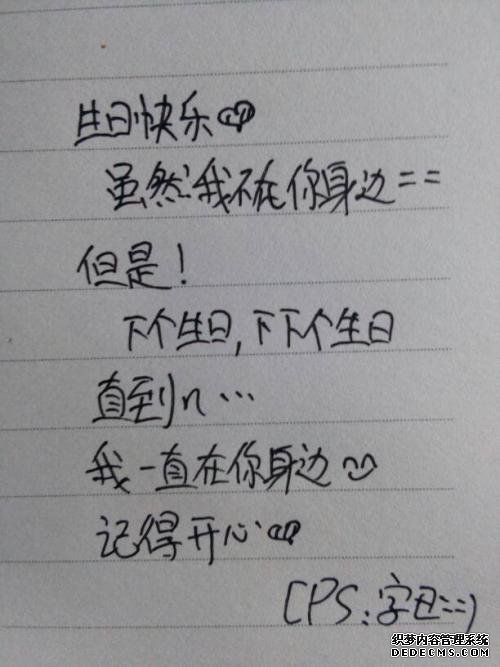 生日快乐
虽然我不在你身边==
但是！
下个生日,下下个生日
直到n…
我一直在你身边
记得开心
(PS:字丑==)
织梦内容管理系统
DEDECMS.COM